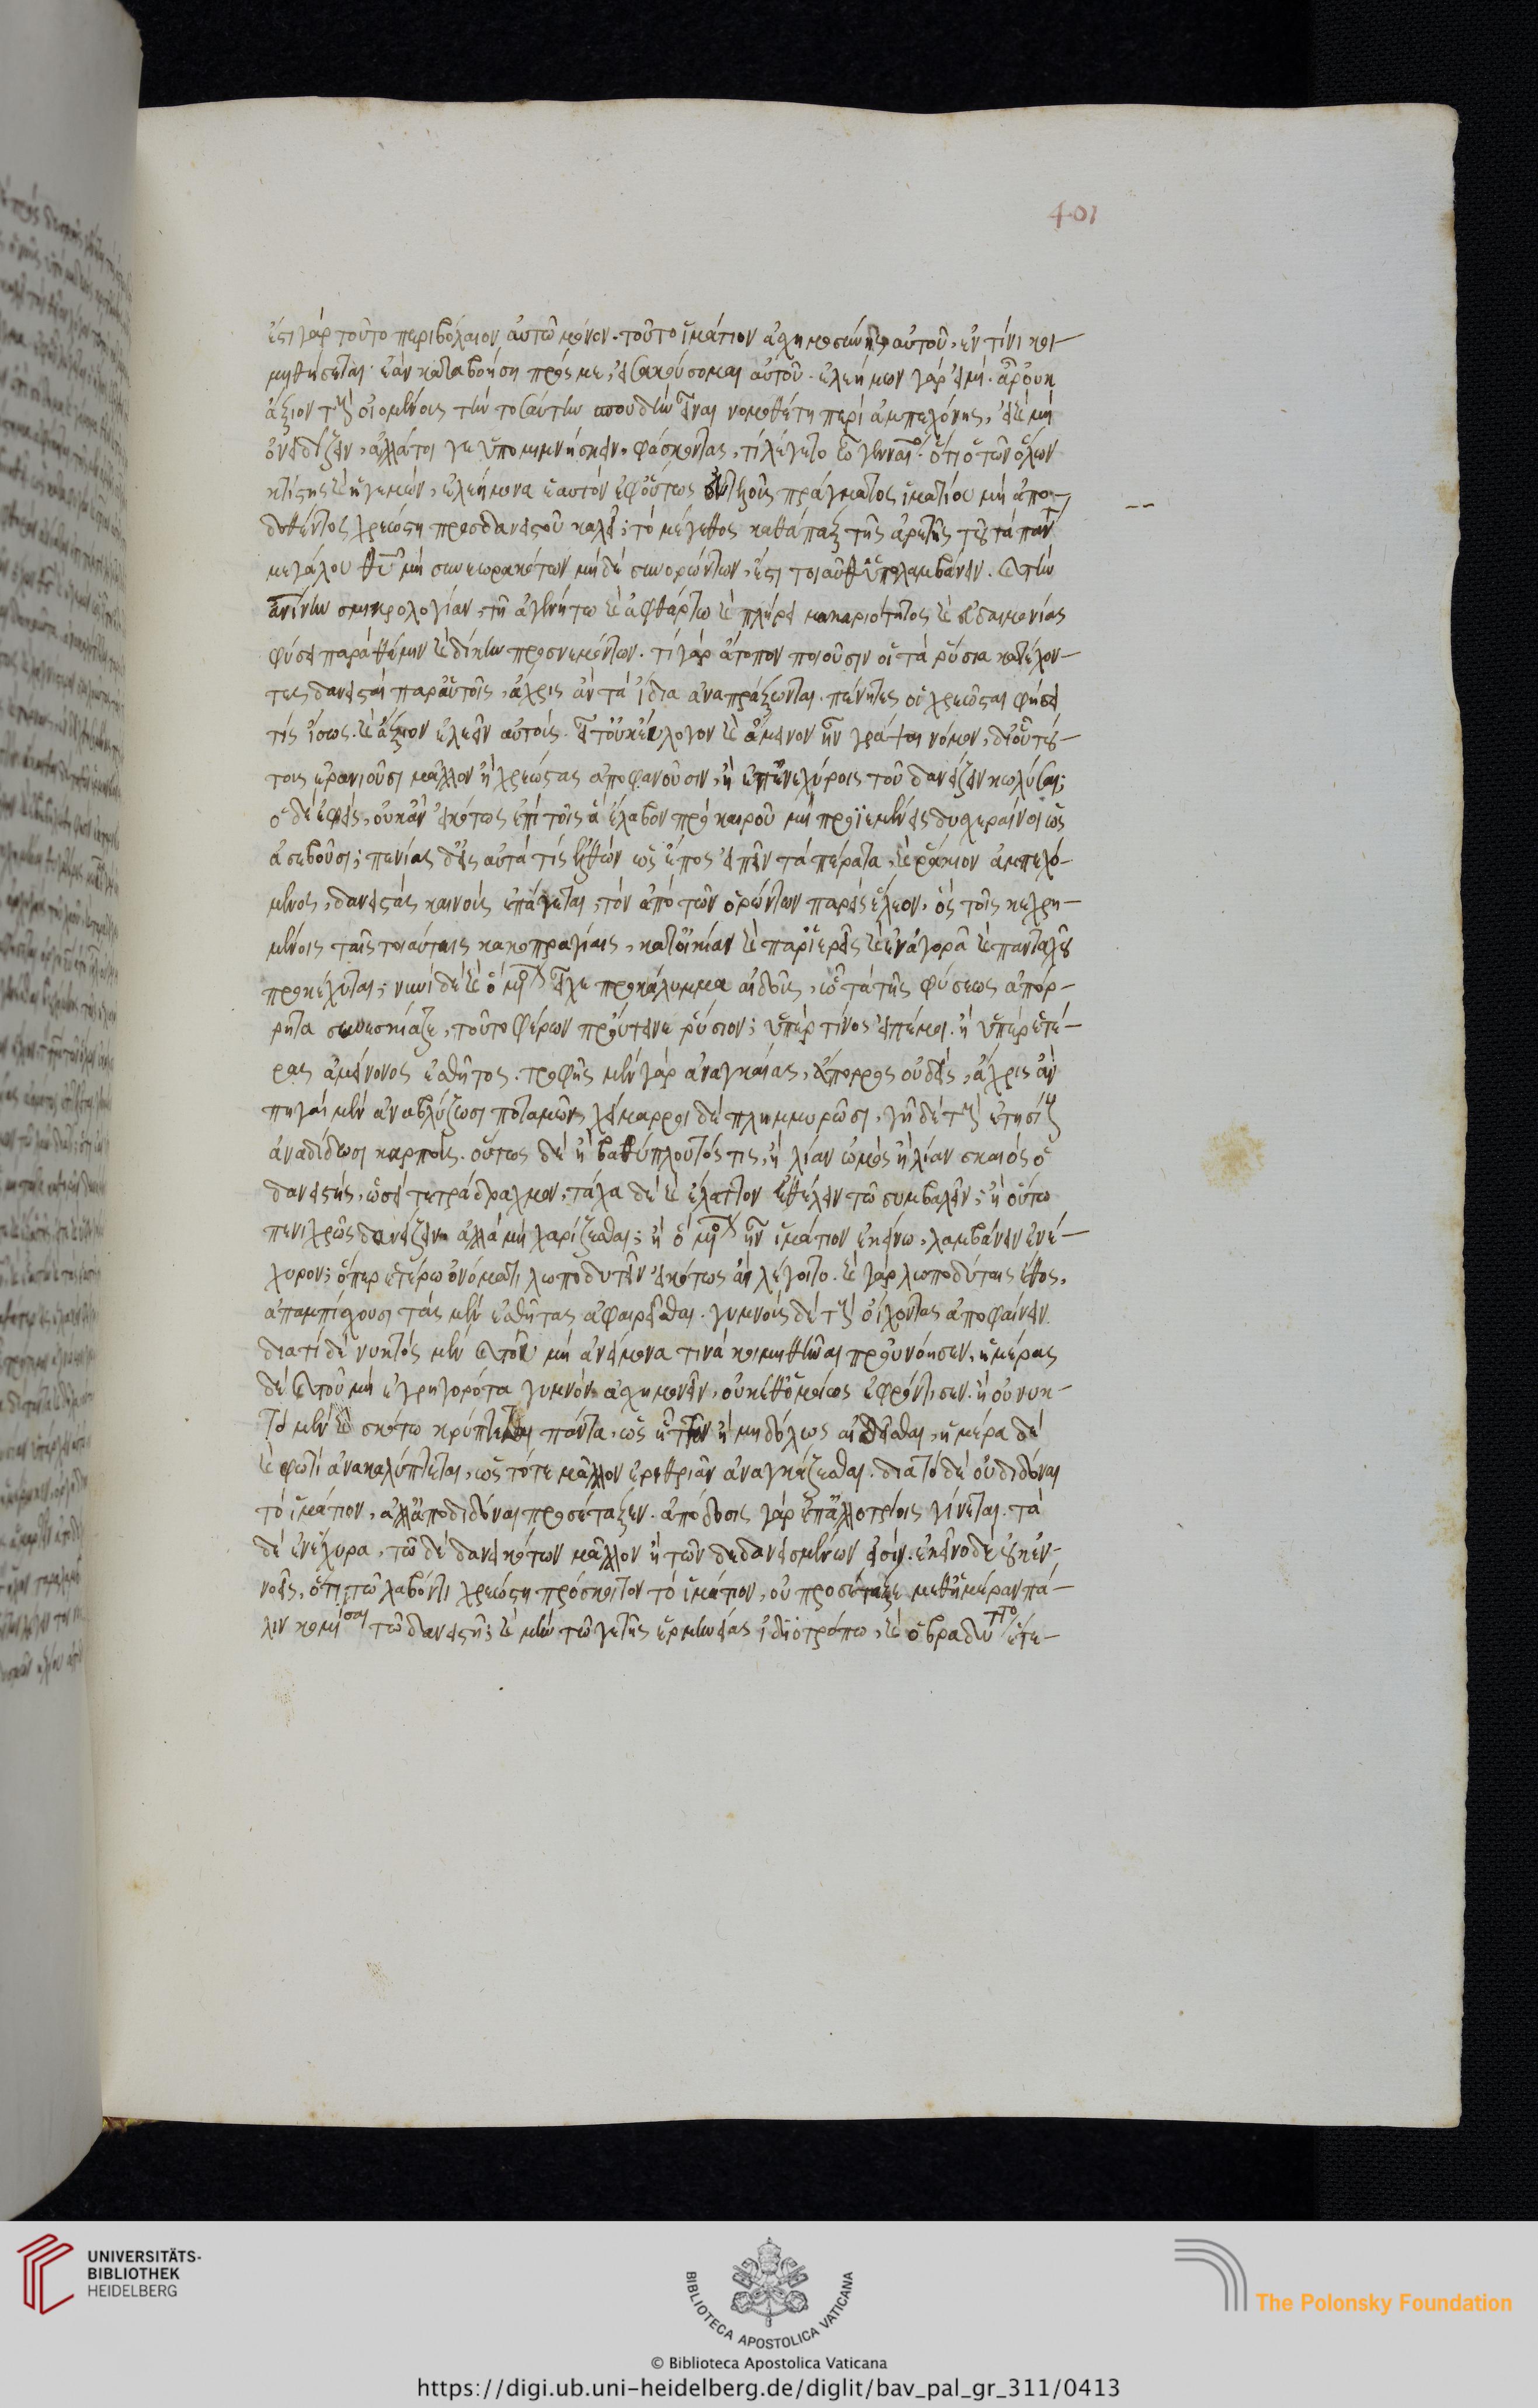 401
ἔστι γὰρ τοῦτο περιβόλαιον αὐτῶ μόνον. τοῦτο ἱμάτιον ἀσχημοσύνης αὐτοῦ, ἐν τίνι κοι-
μηθήσεται. ἐὰν καταβοήση πρός με, εἰσακούσομαι αὐτοῦ. ἐλεήμων γάρ εἰμι. ἆρ' οὐκ
ἄξιον τοὺς οἰομένους τὴν τοσαύτην σπουδὴν εἶναι νομοθέτη περὶ ἀμπεχόνης, εἰ καὶ μὴ
ὀνειδίζειν, ἀλλά τοι γε ὑπομιμνήσκειν, φάσκοντας, τί λέγετε ὦ γενναῖοι. ὅτι ὁ τῶν ὅλων
κτίστης καὶ ἡγεμὼν, ἐλεήμονα ἑαυτὸν ἐφ' οὕτως εὐτελοῦς πράγματος ἱματίου μὴ ἀπο-
δοθέντος χρεώστη πρὸς δανειστοῦ καλεῖ; τὸ μέγεθος καθάπαξ τῆς ἀρετῆς τοῦ τὰ πάντα
μεγάλου θῦ μὴ συνεωρακότων μηδὲ συνορώντων, ἐστὶ τοιαῦθ' ὑπολαμβάνειν. καὶ τὴν
ἀνίνην σμικρολογίαν, τῆ ἀγενήτω καὶ ἀφθάρτω καὶ πλήρει μακαριότητος καὶ εὐδαιμονίας
φύσει παρὰ θέμιν καὶ δίκην προσνεμόντων. τί γὰρ ἄτοπον ποιοῦσιν οἱ τὰ ῥύσια κατέχον-
τες δανεισταὶ παρ' αὑτοῖς, ἄχρις ἂν τὰ ἴδια ἀναπράξωνται. πένητες οἱ χρεῶσται φήσει
τίς ἴσως. καὶ ἄξιον ἐλεεῖν αὐτούς. εἶτ' οὐκ εὔλογον καὶ ἄμεινον ἦν γράψαι νόμον, δι' οὗ τού-
τοις ἐρανιοῦσι μᾶλλον ἢ χρεώστας ἀποφανοῦσιν, ἢ ἐπ' ἐνεχύροις τοῦ δανείζειν κωλύσαι;
ὁ δὲ ἐφεὶς, οὐκ ἂν εἰκότως ἐπὶ τοῖς ἃ ἔλαβον πρὸ καιροῦ μὴ προϊεμένοις δυσχεραίνοι ὡς
ἀσεβοῦσι; πενίας δ' εἰς αὐτὰ τίς ἐλθὼν ὡς ἔπος εἰπεῖν τὰ πέρατα, καὶ ῥάκιον ἀμπεχό-
μενος, δανειστὰς καινοὺς ἐπάγεται, τὸν ἀπὸ τῶν ὁρώντων παρεὶς ἔλεον, ὃς τοῖς κεχρη-
μένοις ταῖς τοιαύταις κακοπραγίαις, κατ' οἰκίαν καὶ παρ' ἱεροῖς καὶ ἐν ἀγορᾶ καὶ πανταχοῦ
προκέχυται; νυνὶ δὲ καὶ ὃ μόνον εἶχε προκάλυμμα αἰδοῦς, ὧ τὰ τῆς φύσεως ἀπόρ-
ρητα συνεσκίαζε, τοῦτο φέρων προύτεινε ῥύσιον; ὑπὲρ τίνος εἰπέ μοι. ἢ ὑπὲρ ἑτέ-
ρας ἀμείνονος ἐσθῆτος. τροφῆς μὲν γὰρ ἀναγκαίας, ἄπορος οὐδεὶς, ἄχρις ἂν
πηγαὶ μὲν ἀναβλύζωσι ποταμῶν, χείμαρροι δὲ πλημμυρῶσι, γῆ δὲ τοὺς ἐτησίους
ἀναδίδωσι καρπούς. οὕτως δὲ ἢ βαθύπλουτός τις, ἢ λίαν ὠμὸς ἢ λίαν σκαιὸς ὁ
δανειστής, ὡς τετράδραχμον, τάχα δὲ καὶ ἔλαττον ἐθέλειν τῶ συμβαλεῖν; ἢ οὕτω
πενιχρῶς δανείζειν ἀλλὰ μὴ χαρίζεσθαι; ἢ ὃ μόνον ἦν ἱμάτιον ἐκείνω, λαμβάνειν ἐνέ-
χυρον; ὅπερ ἑτέρω ὀνόματι λωποδυτεῖν εἰκότως ἂν λέγοιτο. καὶ γὰρ λωποδύταις ἔθος,
ἀπαμπίσχουσι τὰς μὲν ἐσθῆτας ἀφαιρεῖσθαι. γυμνοὺς δὲ τοὺς ἔχοντας ἀποφαίνειν.
διατί δὲ νυκτὸς μὲν καὶ τοῦ μὴ ἀνείμονά τινα κοιμηθῆναι προυνόησεν, ἡμέρας
δὲ καὶ τοῦ μὴ ἐγρηγορότα γυμνὸν ἀσχημονεῖν, οὐκέθ' ὁμοίως ἐφρόντισεν. ἢ οὐ νυκ-
τὶ μὲν καὶ σκότω κρύπτεται πάντα, ὡς ἧττον ἢ μηδόλως αἰδεῖσθαι, ἡμέρα δὲ
καὶ φωτὶ ἀνακαλύπτεται, ὡς τότε μᾶλλον ἐρυθριᾶν ἀναγκάζεσθαι. διατί δὲ οὐ διδόναι
τὸ ἱμάτιον, ἀλλ' ἀποδιδόναι προσέταξεν. ἀπόδοσις γὰρ ἐπ' ἀλλοτρίοις γίνεται. τὰ
δὲ ἐνέχυρα, τῶ δὲ δανεικότων μᾶλλον ἢ τῶν δεδανεισμένων εἰσίν. ἐκεῖνο δὲ οὐκ ἐν-
νοεῖς, ὅτι τῶ λαβόντι χρεώστη πρόσκοιτον τὸ ἱμάτιον, οὐ προσέταξε μεθ' ἡμέραν πά-
λιν κομίσαι τῶ δανειστῆ; καὶ μὲν τῶ γε τῆς ἑρμηνείας ἰδιοτρόπω, καὶ ὁ βραδύτατος ἕτε-
UNIVERSITÄTS-
BIBLIOTHEK
HEIDELBERG
BIBLIOTECA APOSTOLICA VATICANA
The Polonsky Foundation
© Biblioteca Apostolica Vaticana
https://digi.ub.uni-heidelberg.de/diglit/bav_pal_gr_311/0413